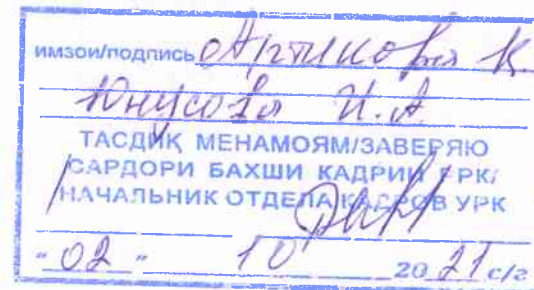 имзои/подпись Артикова Қ
Юнусова И.А
ТАСДИҚ МЕНАМОЯМ/ЗАВЕРЯЮ
САРДОРИ БАХШИ КАДРИИ УРК/
НАЧАЛЬНИК ОТДЕЛА КАДРОВ УРК
"02" 10 2021 с/г